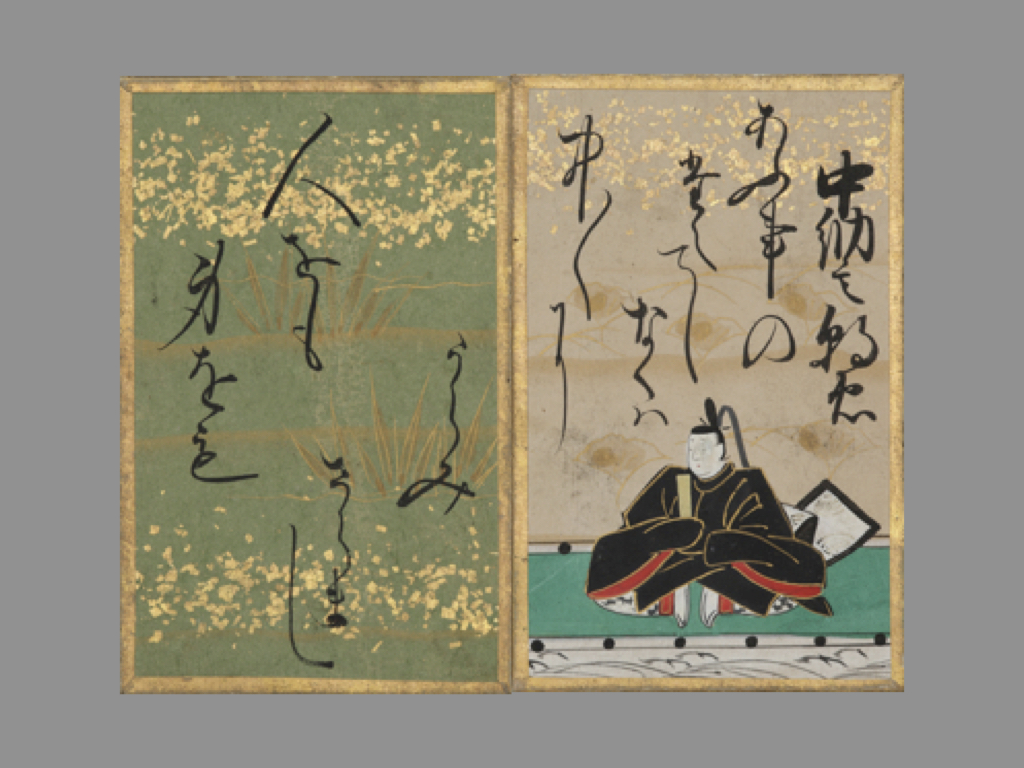 中納言朝忠
あふ事の
たえてし
なくは
中〱
に
人をも
身をも
うらみ
さらまし